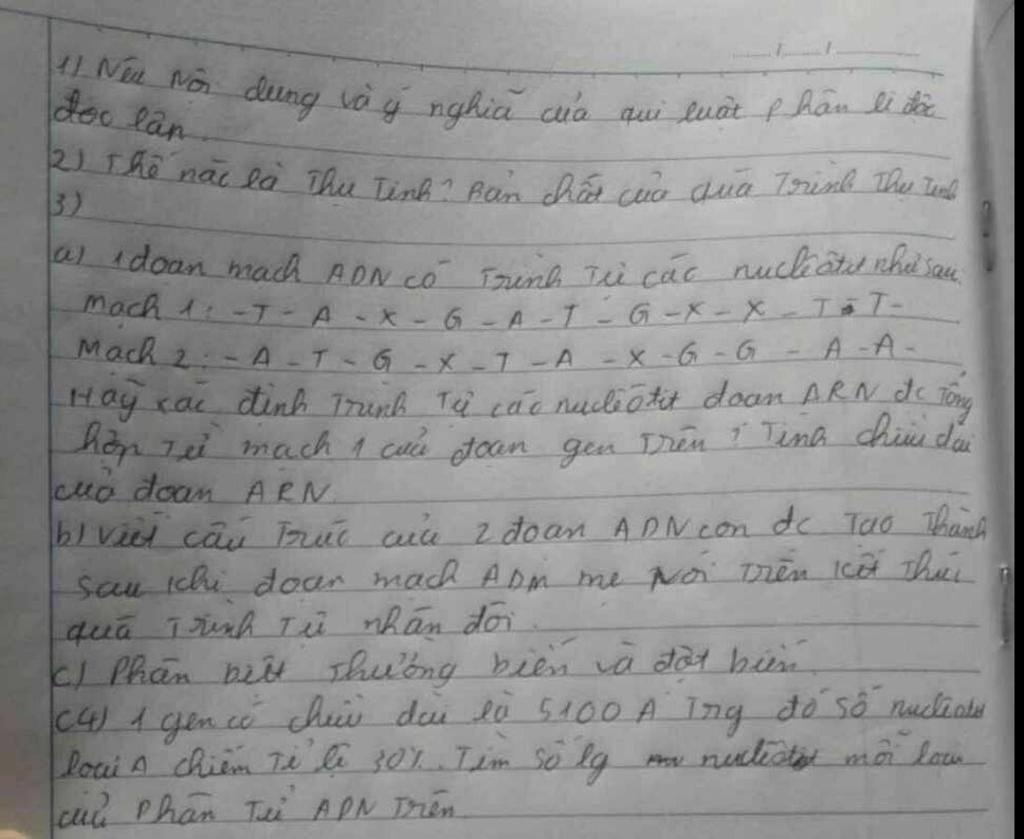 1) Nêu Nội dung và ý nghĩa của qui luật phân li độc
độc lân.
2) Thế nào là Thụ Tinh? Bản chất của quá Trình Thụ Tinh
3)
a) 1 đoạn mạch ADN có Trình Tự các nuclêôtit như sau.
Mạch 1: -T-A-X-G-A-T-G-X-X-T-T-
Mạch 2: -A-T-G-X-T-A-X-G-G-A-A-
Hãy xác định Trình Tự các nuclêôtit đoạn ARN đc Tổng
hợp Từ mạch 1 của đoạn gen Trên? Tính chiều dài
của đoạn ARN
b) Viết cấu Trúc của 2 đoạn ADN con đc Tạo Thành
sau khi đoạn mạch ADN mẹ Nói Trên kết Thúc
quá Trình Tự nhân đôi.
c) Phân biệt Thường biến và đột biến
C4) 1 gen có chiều dài là 5100 A Trg đó số nuclêôtit
loại A chiếm Tỉ lệ 30%. Tìm số lg nuclêôtit mỗi loại
của Phân Tử ADN Trên